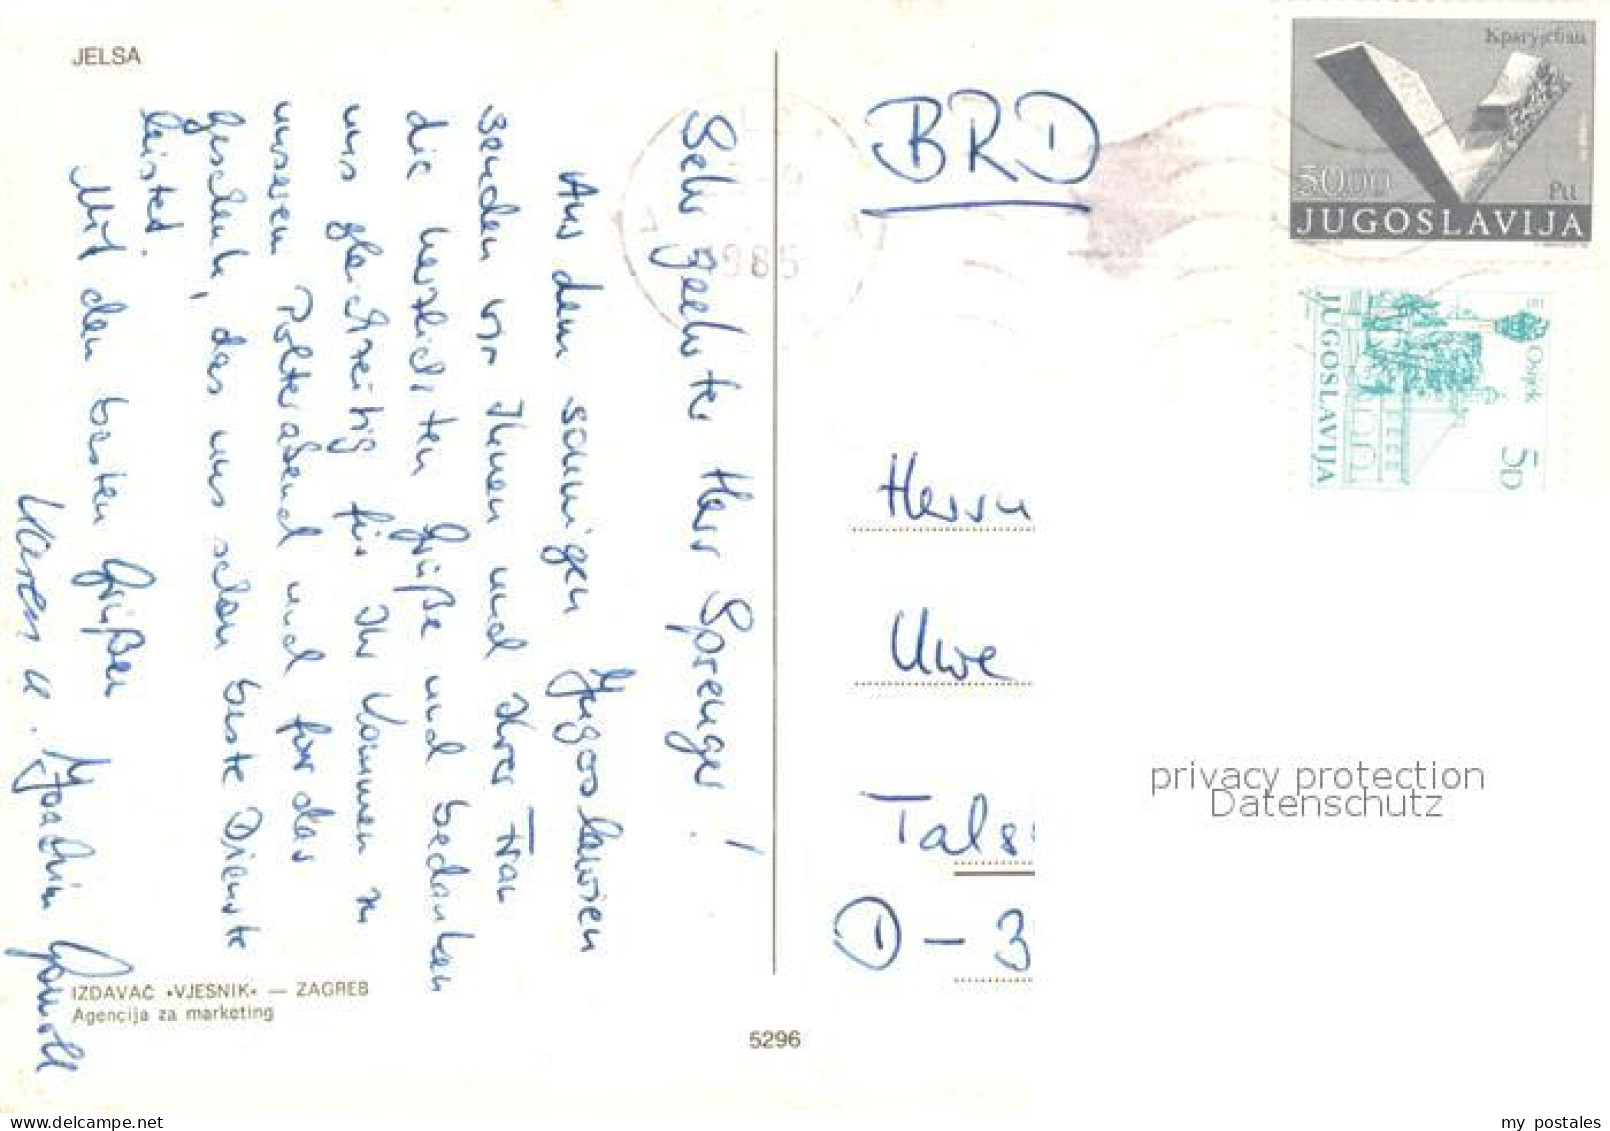 JELSA
Sehr geehrter Herr Sprenger!
Aus dem sonnigen Jugoslawien
senden wir Ihnen und Ihrer Frau
die herzlichsten Grüße und bedanken
uns gleichzeitig für Ihr Kommen zu
unseren Polterabend und für das
Geschenk, das uns schon beste Dienste
leisted.
Mit den besten Grüßen
Karen u. Joachim
IZDAVAČ »VJESNIK« — ZAGREB
Agencija za marketing
5296
1985
BRD
Herrn
Uwe
Tals
D-3
50.00
JUGOSLAVIJA
Osijek
5D
JUGOSLAVIJA
privacy protection
Datenschutz
delcampe.net
my_postales